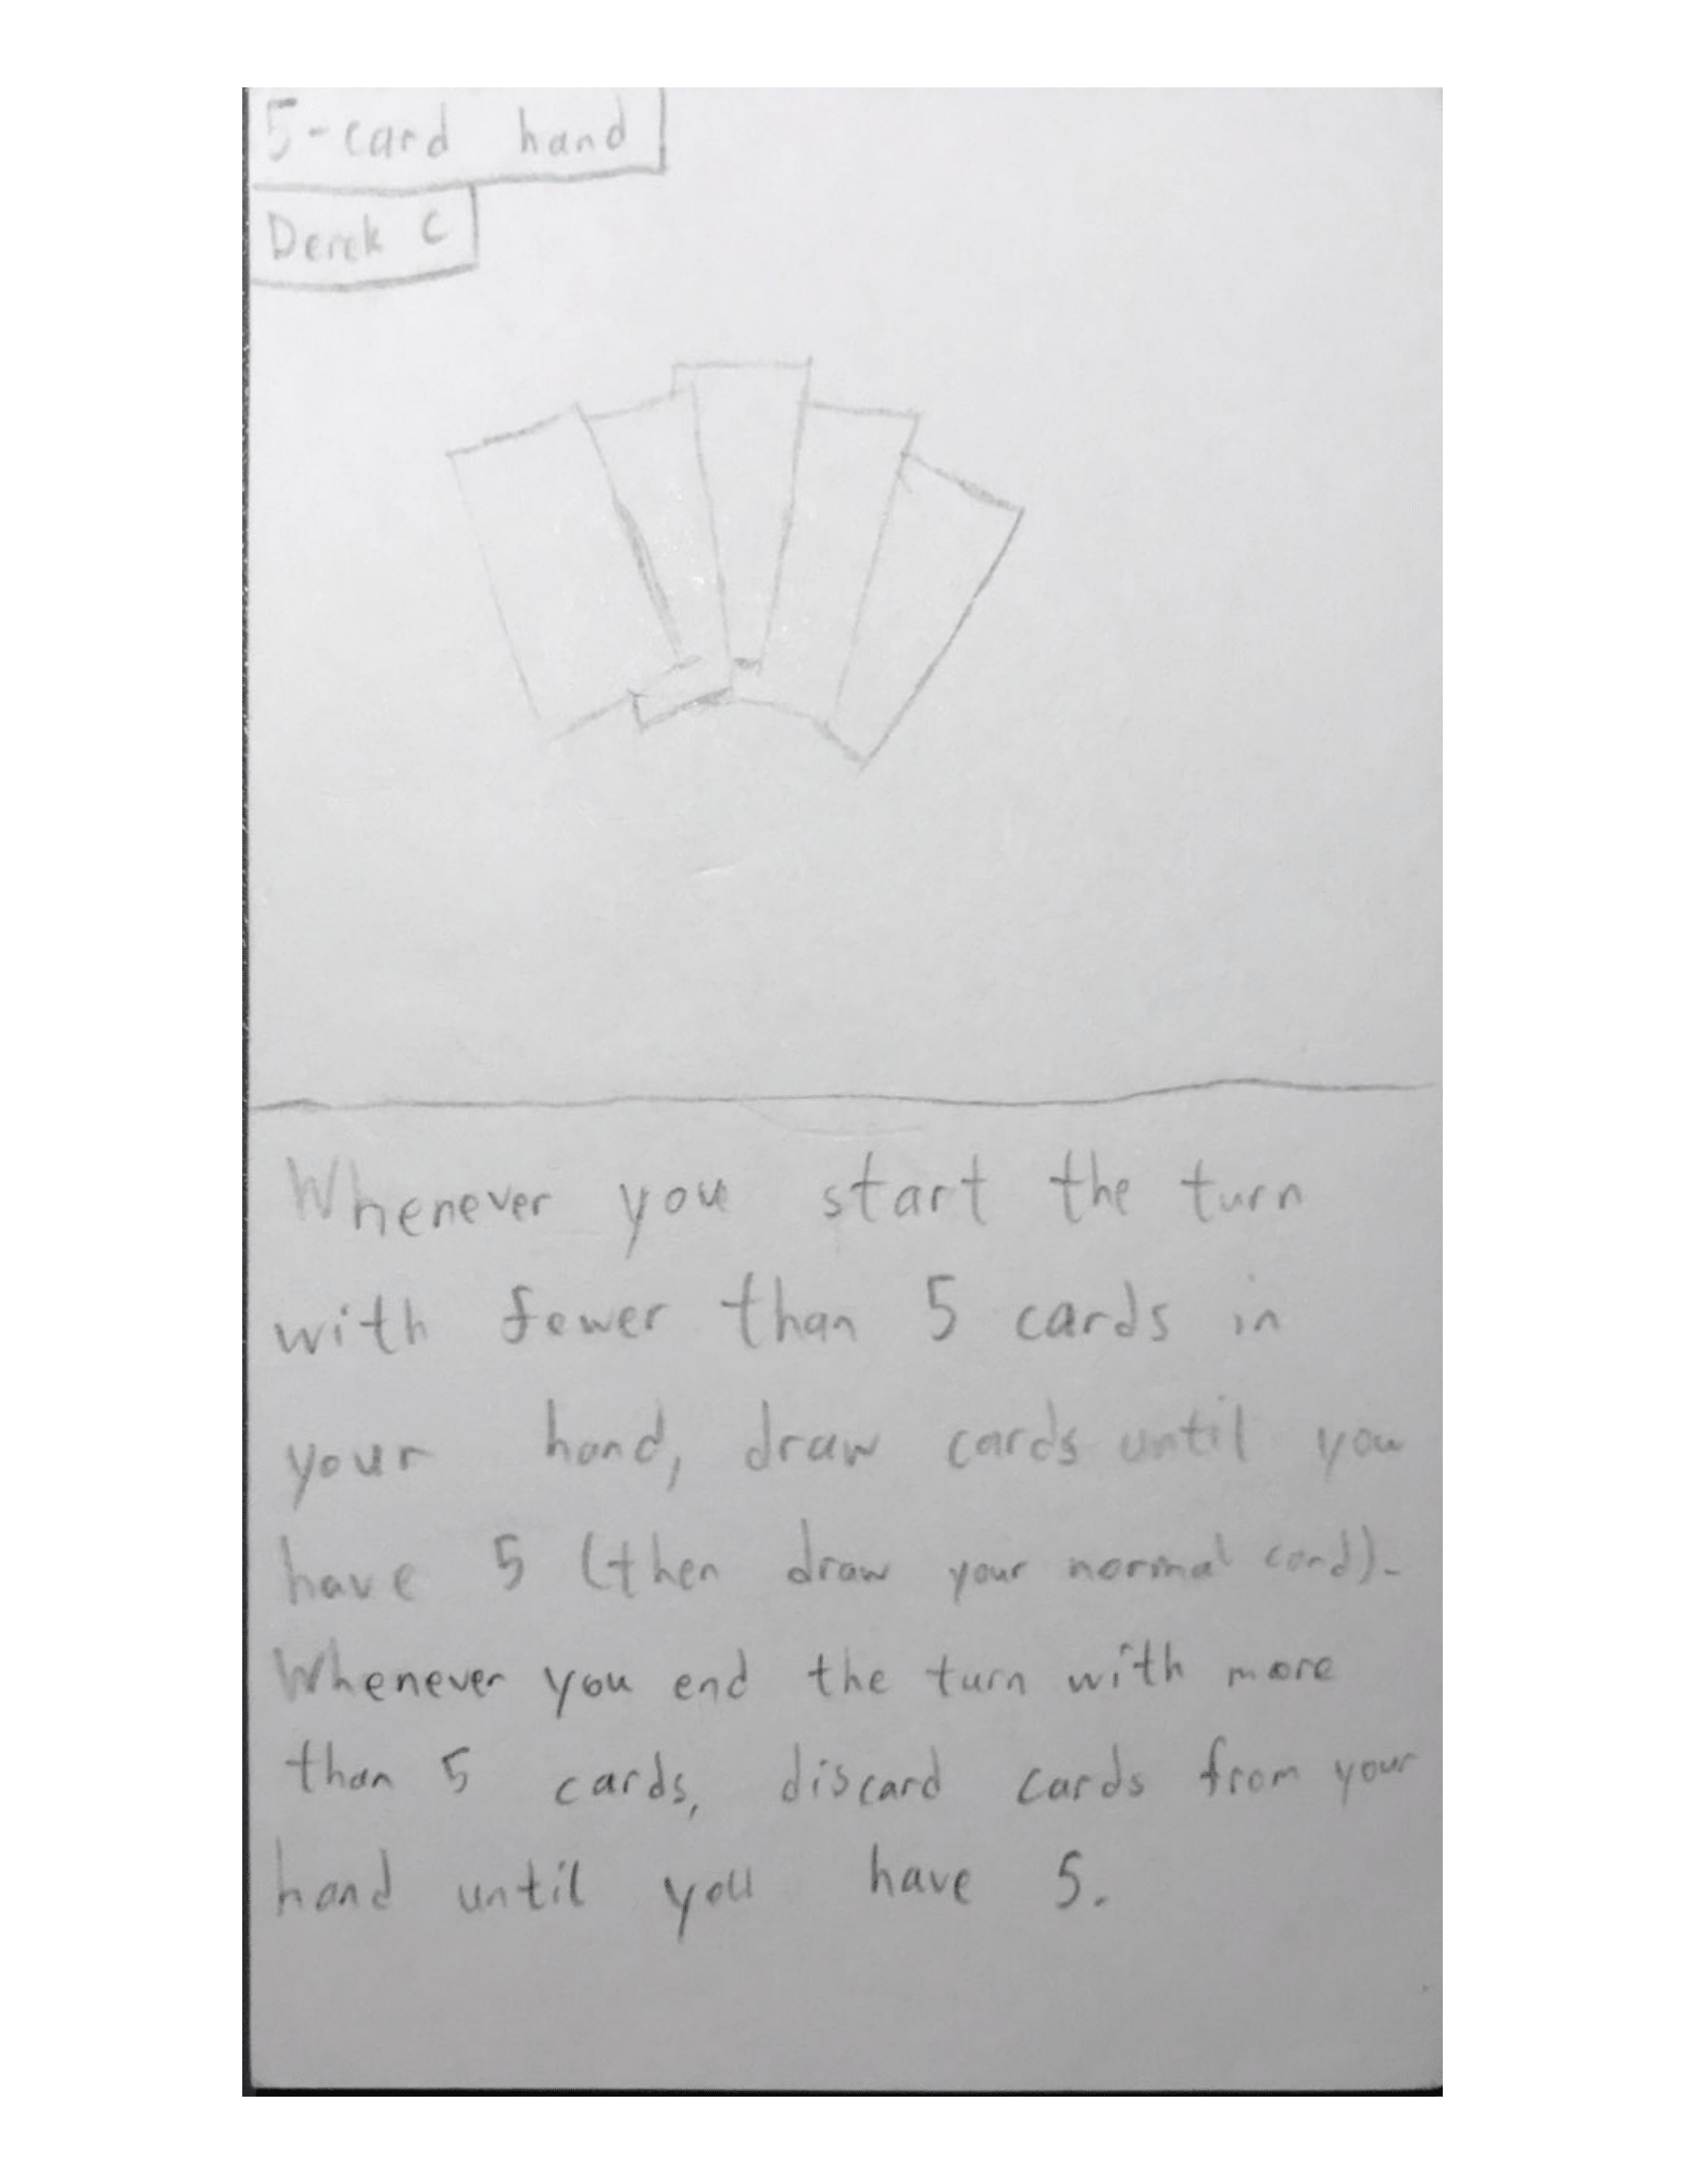 5-card hand
Derek C
Whenever you start the turn
with fewer than 5 cards in
your hand, draw cards until you
have 5 (then draw your normal card).
Whenever you end the turn with more
than 5 cards, discard cards from your
hand until you have 5.